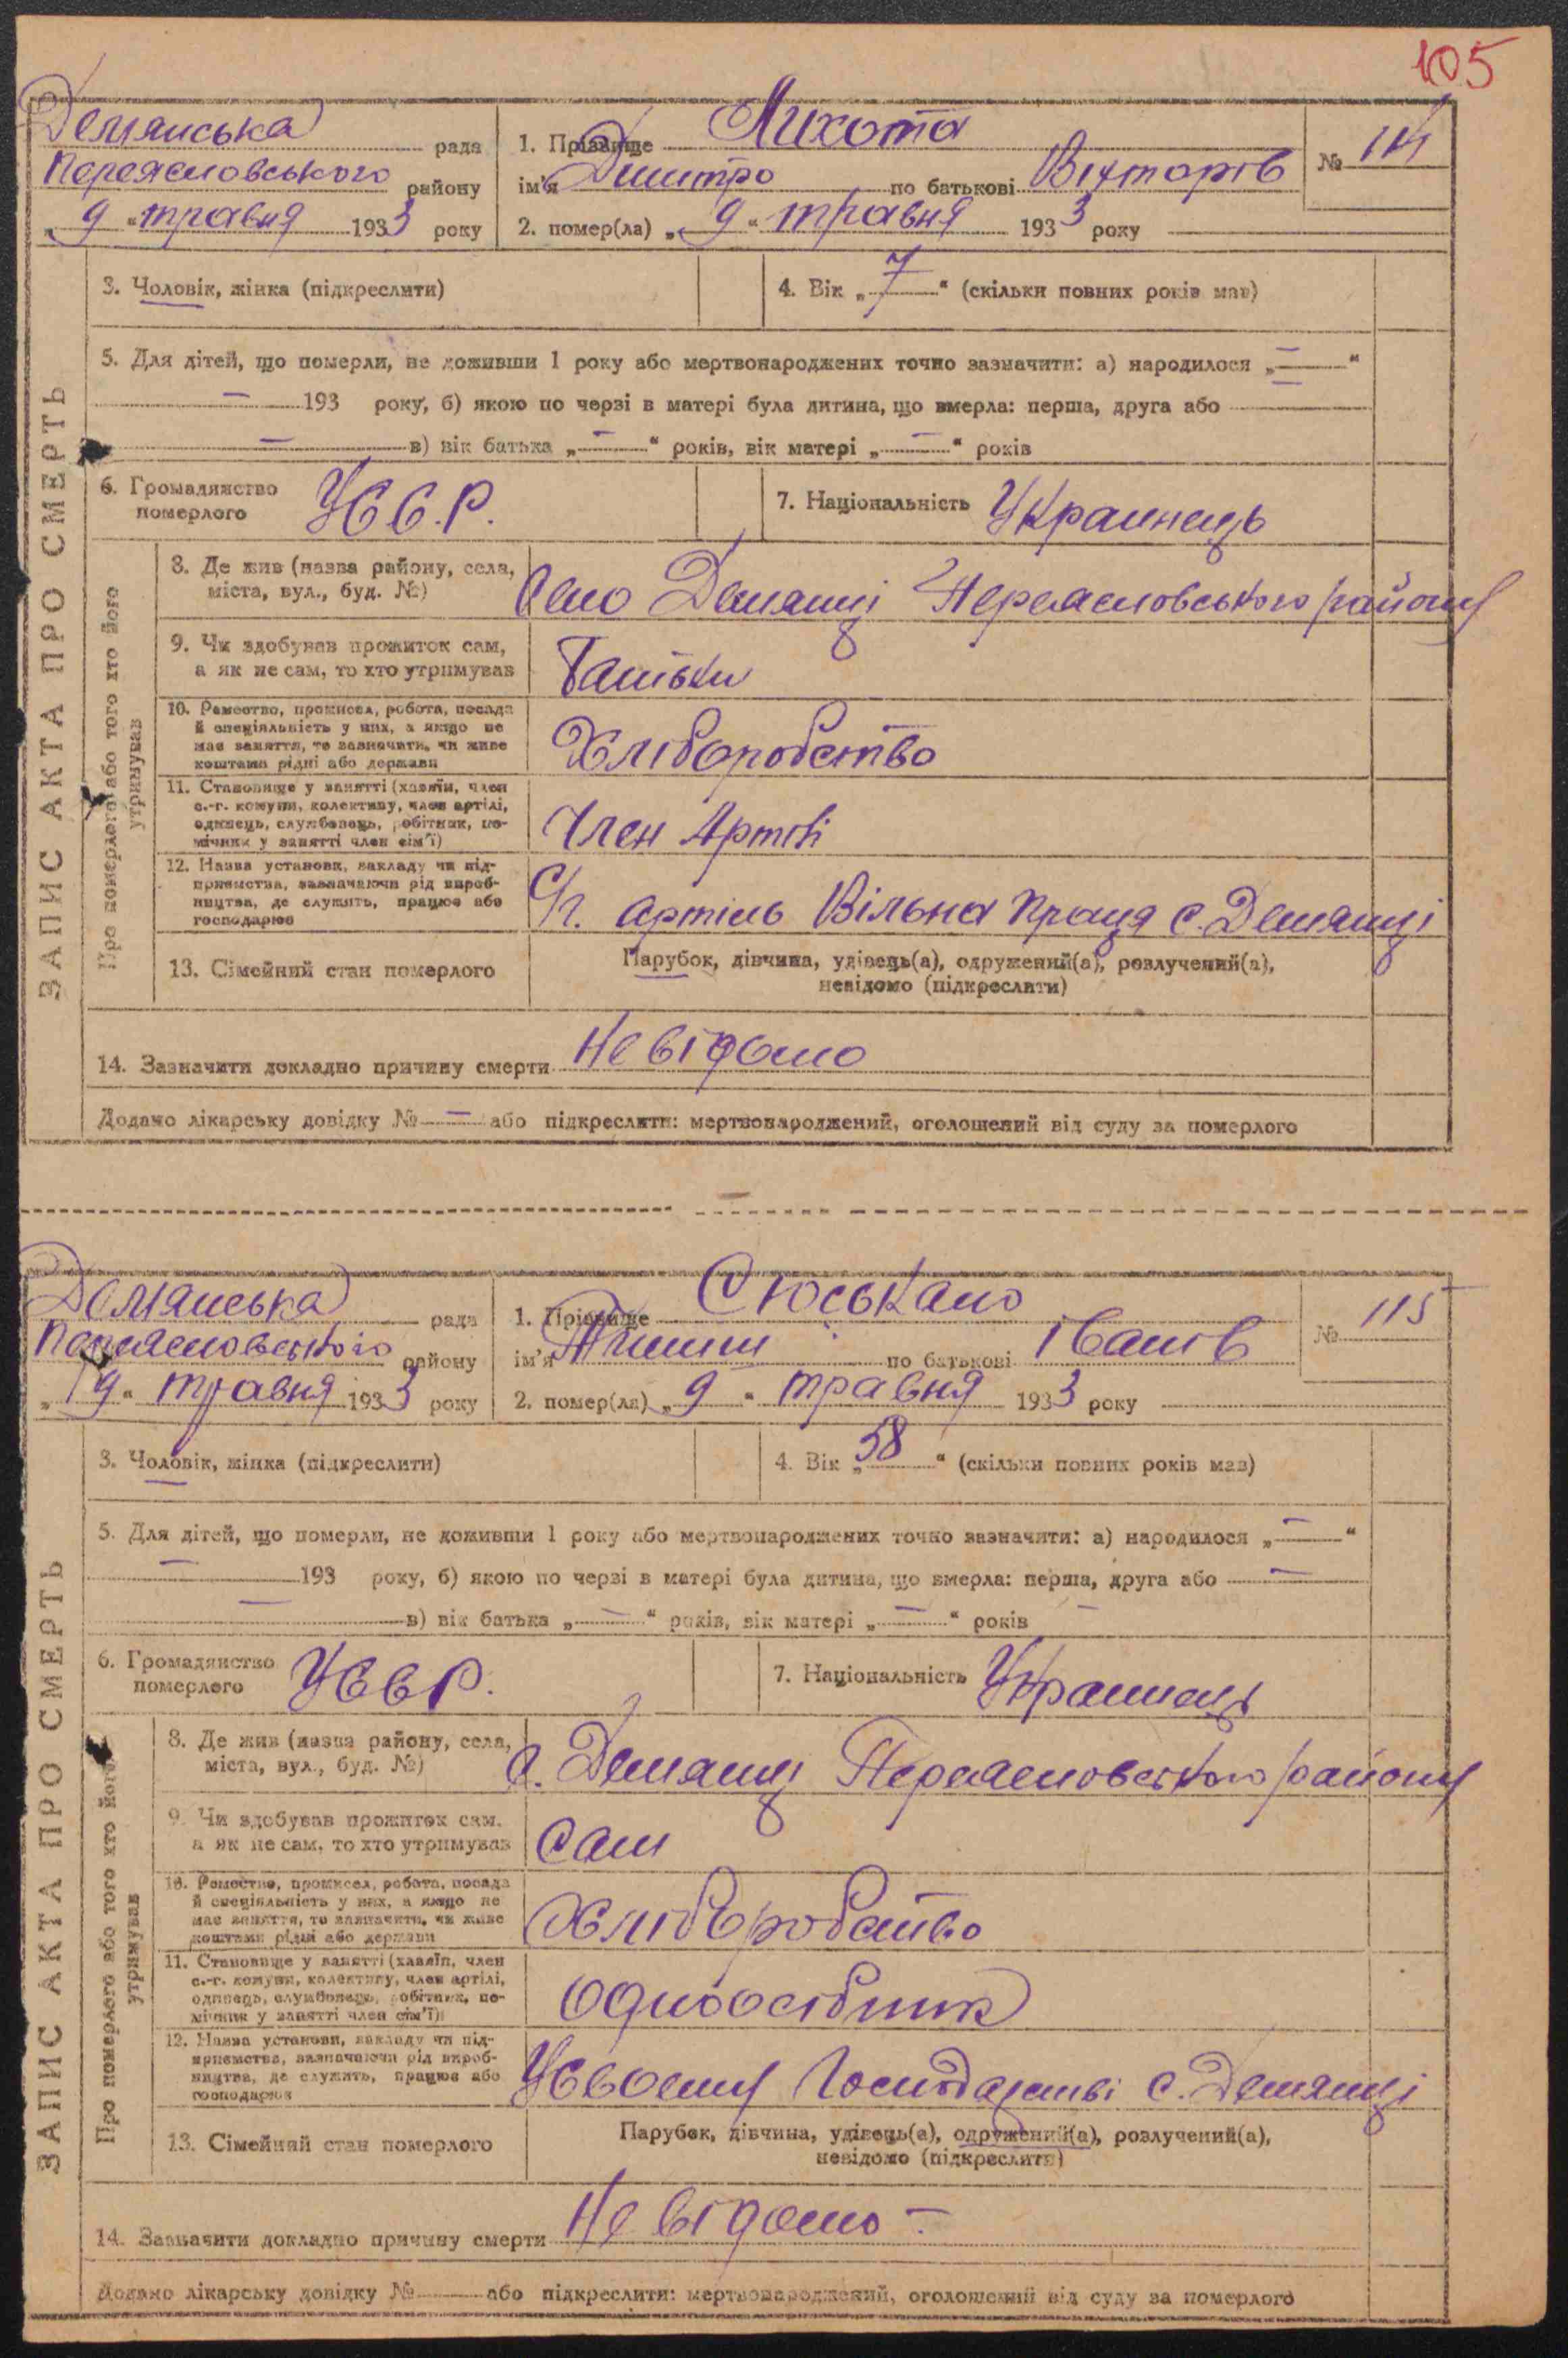 105
Демянська рада
Переяславського району
„ 9 “ травня 1933 року
1. Прізвище Лихота
ім'я Дмитро по батькові Вікторів
№ 114
2. помер(ла) „ 9 “ травня 1933 року
3. Чоловік, жінка (підкреслити)
4. Вік „ 7 “ (скільки повних років мав)
5. Для дітей, що померли, не доживши 1 року або мертвонароджених точно зазначити: а) народилося „ — “
— 193 року, б) якою по черзі в матері була дитина, що вмерла: перша, друга або
— в) вік батька „ — “ років, вік матері „ — “ років
6. Громадянство
померлого
УССР.
7. Національність Украинець
ЗАПИС АКТА ПРО СМЕРТЬ
Про померлого або того хто його
утримував
8. Де жив (назва району, села,
міста, вул., буд. №)
Село Демянці Переясловського району
9. Чи здобував прожиток сам,
а як не сам, то хто утримував
Батьки
10. Ремество, промисел, робота, посада
й спеціяльність у них, а якщо не
має заняття, то зазначити, чи живе
коштами рідні або держави
Хліборобство
11. Становище у занятті (хазяїн, член
с.-г. комуни, колективу, член артілі,
одинець, службовець, робітник, по-
мічник у занятті член сім'ї)
Член Артілі
12. Назва установи, закладу чи під-
приємства, зазначаючи рід вироб-
ництва, де служить, працює або
господарює
С/г. артіль Вільна Праця с. Демянці
13. Сімейний стан померлого
Парубок, дівчина, удівець(а), одружений(а), розлучений(а),
невідомо (підкреслити)
14. Зазначити докладно причину смерти Невідомо
Додано лікарську довідку № — або підкреслити: мертвонароджений, оголошений від суду за померлого
Демянська рада
Переясловського району
„ 9 “ травня 1933 року
1. Прізвище Сюськало
ім'я по батькові Іванів
№ 115
2. помер(ла) „ 9 “ травня 1933 року
3. Чоловік, жінка (підкреслити)
4. Вік „ 58 “ (скільки повних років мав)
5. Для дітей, що померли, не доживши 1 року або мертвонароджених точно зазначити: а) народилося „ — “
— 193 року, б) якою по черзі в матері була дитина, що вмерла: перша, друга або —
— в) вік батька „ — “ років, вік матері „ — “ років
6. Громадянство
померлого
УССР.
7. Національність Украинець
ЗАПИС АКТА ПРО СМЕРТЬ
Про померлого або того хто його
утримував
8. Де жив (назва району, села,
міста, вул., буд. №)
с. Демянці Переясловського району
9. Чи здобував прожиток сам,
а як не сам, то хто утримував
Сам
10. Ремество, промисел, робота, посада
й спеціяльність у них, а якщо не
має заняття, то зазначити, чи живе
коштами рідні або держави
Хліборобство
11. Становище у занятті (хазяїн, член
с.-г. комуни, колективу, член артілі,
одинець, службовець, робітник, по-
мічник у занятті член сім'ї)
Одноосібник
12. Назва установи, закладу чи під-
приємства, зазначаючи рід вироб-
ництва, де служить, працює або
господарює
Усвоему Господарстві с. Демянці
13. Сімейний стан померлого
Парубок, дівчина, удівець(а), одружений(а), розлучений(а),
невідомо (підкреслити)
14. Зазначити докладно причину смерти Невідомо —
Додано лікарську довідку № або підкреслити: мертвонароджений, оголошений від суду за померлого